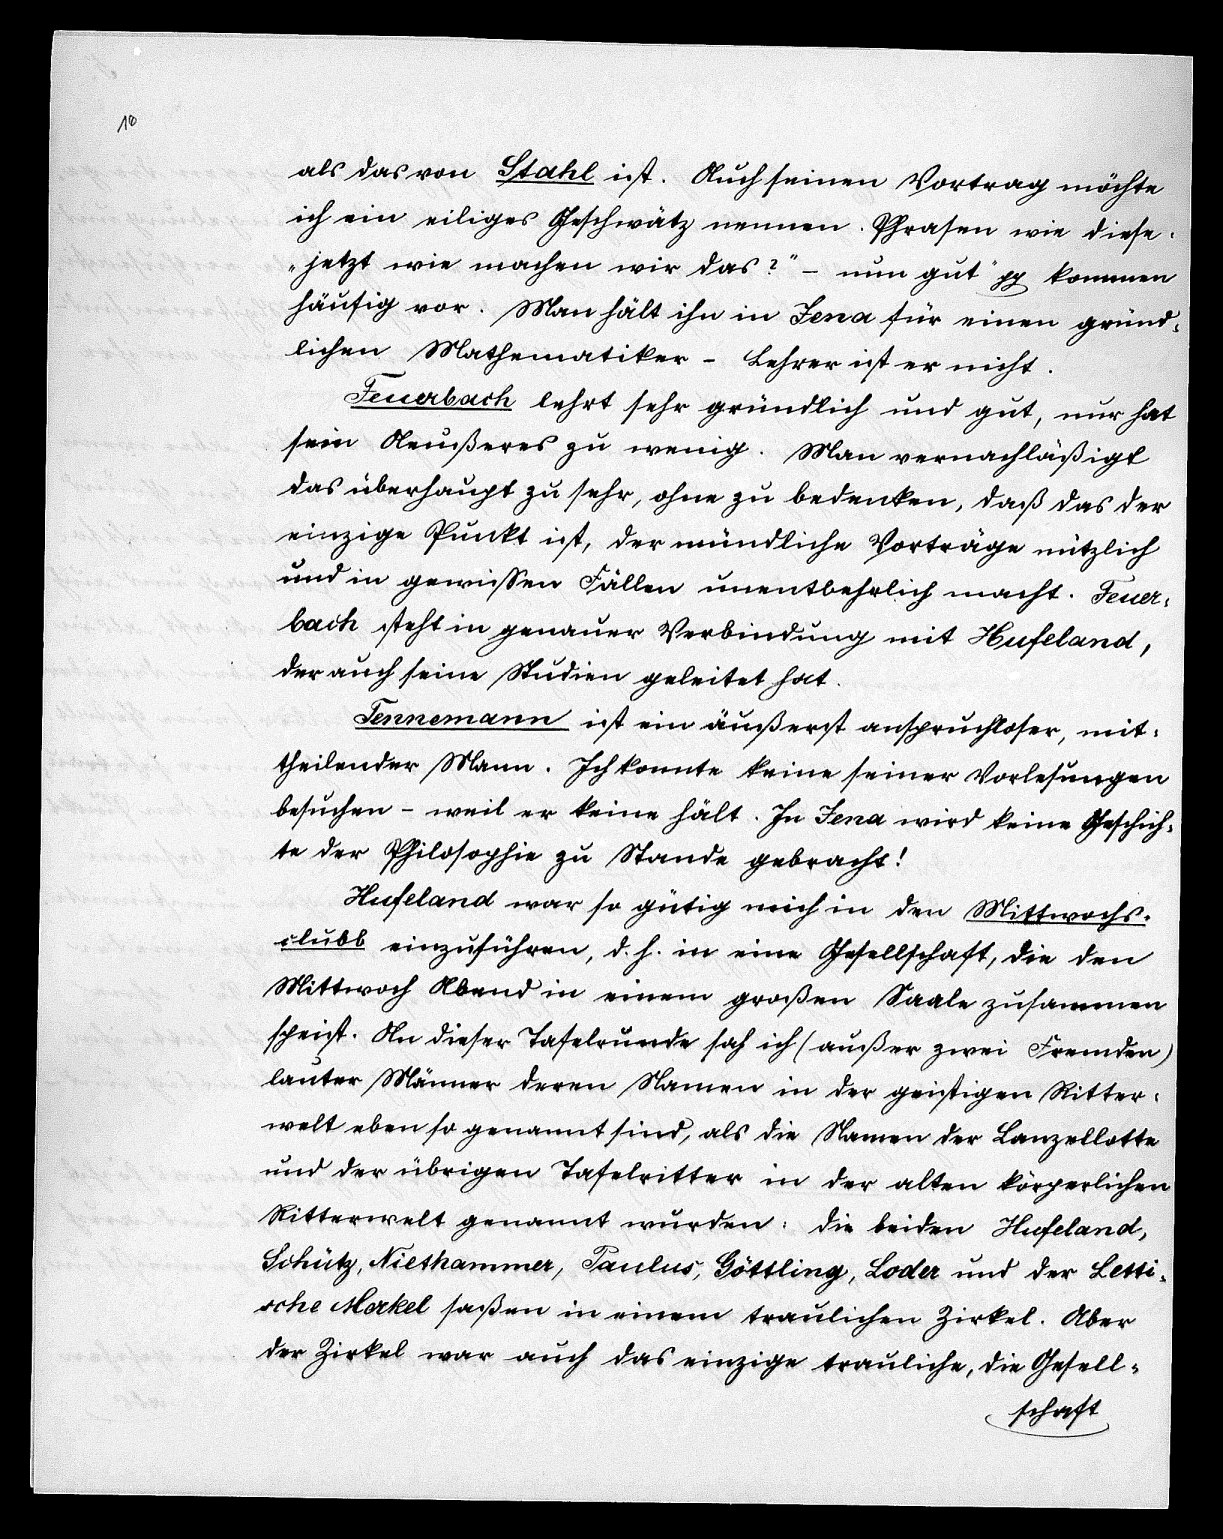 10
als das von Stahl ist. Auch seinen Vortrag möchte
ich ein eiliges Geschwätz nennen. Phrasen wie diese:
„jetzt wie machen wir das?" – nun gut" pp kommen
häufig vor. Man hält ihn in Jena für einen gründ-
lichen Mathematiker – Lehrer ist er nicht.
Feuerbach lehrt sehr gründlich und gut, nur hat
sein Aeußeres zu wenig. Man vernachläßigt
das überhaupt zu sehr, ohne zu bedenken, daß das der
einzige Punkt ist, der mündliche Vorträge nützlich
und in gewissen Fällen unentbehrlich macht. Feuer-
bach steht in genauer Verbindung mit Hufeland,
der auch seine Studien geleitet hat.
Tennemann ist ein äußerst anspruchloser, mit-
theilender Mann. Ich konnte keine seiner Vorlesungen
besuchen – weil er keine hält. In Jena wird keine Geschich-
te der Philosophie zu Stande gebracht!
Hufeland war so gütig mich in den Mittwochs-
clubb einzuführen, d. h. in eine Gesellschaft, die den
Mittwoch Abend in einem großen Saale zusammen
speist. An dieser Tafelrunde sah ich (außer zwei Fremden)
lauter Männer deren Namen in der geistigen Ritter-
welt eben so genannt sind, als die Namen der Lanzellotte
und der übrigen Tafelritter in der alten körperlichen
Ritterwelt genannt wurden: die beiden Hufeland,
Schütz, Niethammer, Paulus, Göttling, Loder und der Letti-
sche Merkel saßen in einem traulichen Zirkel. Aber
der Zirkel war auch das einzige trauliche, die Gesell-
schaft